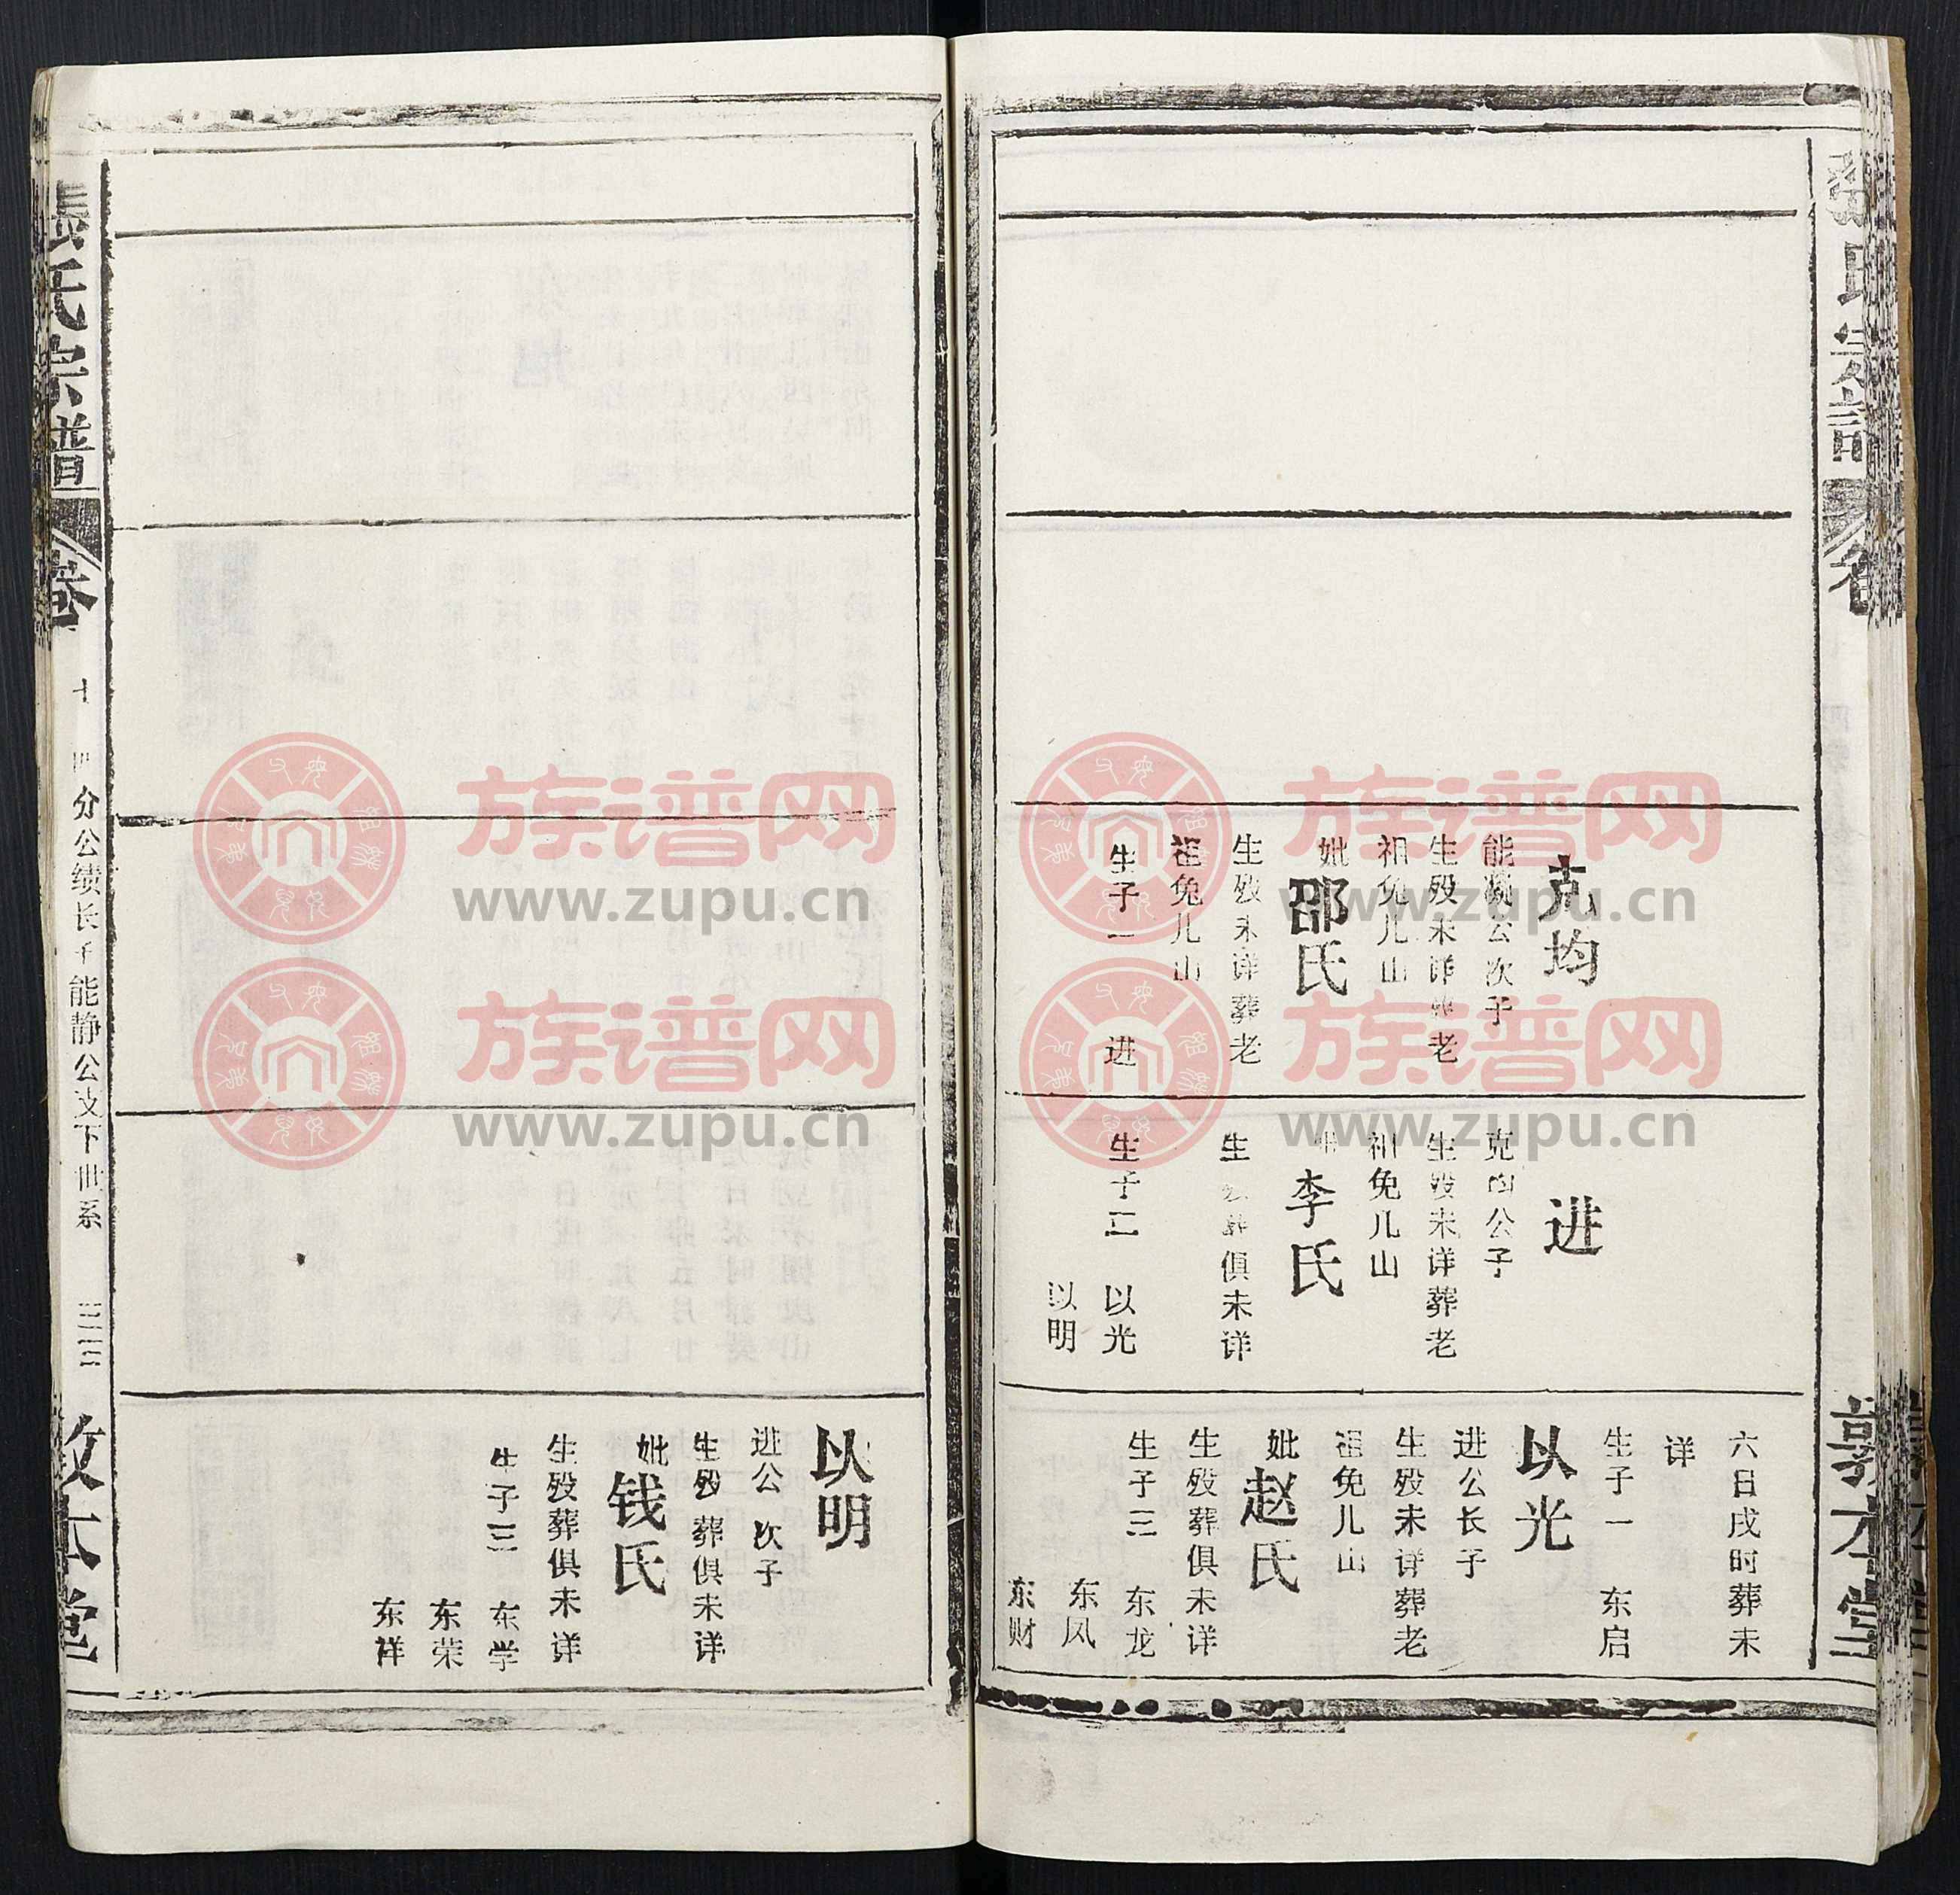 克均
能灏公次子
生殁未详葬老
祖兔儿山
妣邵氏
生殁未详葬老
祖兔儿山
生子一 进
进
克均公子
生殁未详葬老
祖兔儿山
李氏
生殁葬俱未详
生子二 以光
以明
六日戌时葬未
详
生子一 东启
以光
进公长子
生殁未详葬老
祖兔儿山
妣赵氏
生殁葬俱未详
生子三 东龙
东风
东财
張氏宗譜
卷
敦本堂
以明
进公次子
生殁葬俱未详
妣钱氏
生殁葬俱未详
生子三 东学
东荣
东祥
張氏宗譜 卷十
四分公绩长子能静公支下世系
敦本堂
族谱网
www.zupu.cn
族谱网
www.zupu.cn
族谱网
www.zupu.cn
族谱网
www.zupu.cn